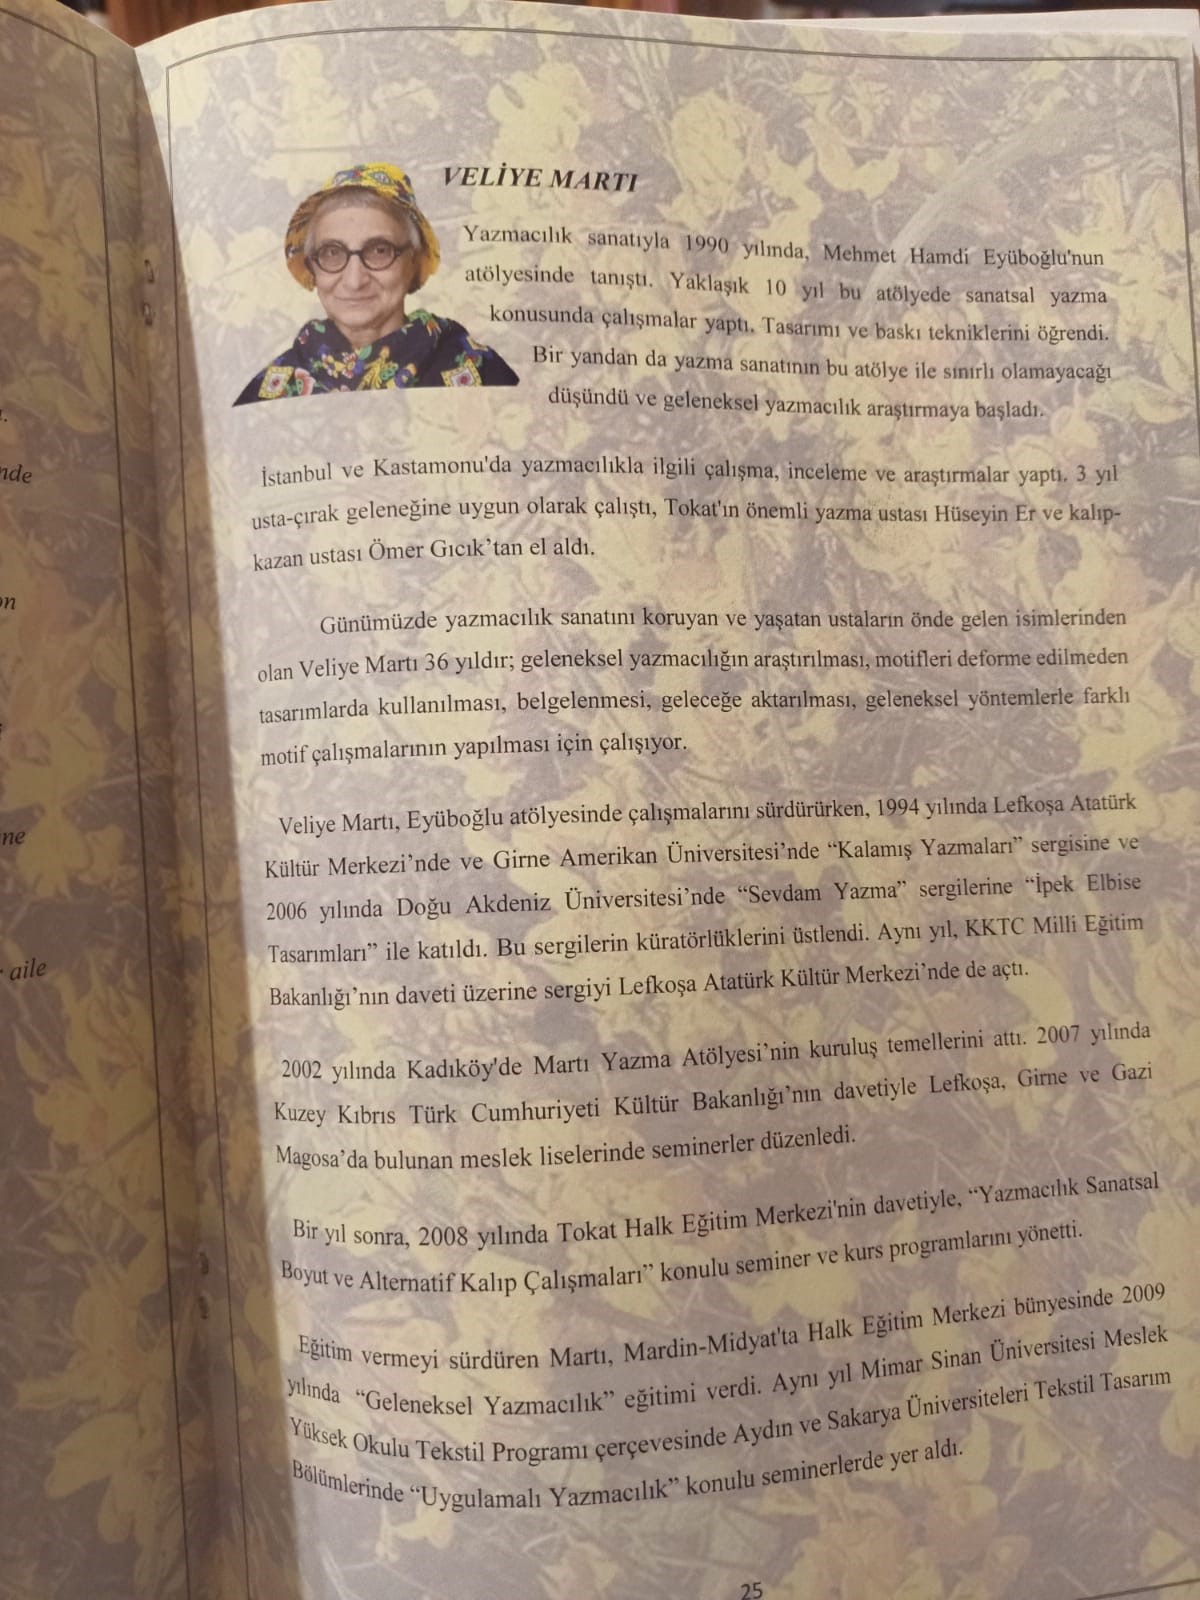 .
nde
on
ne
aile
VELİYE MARTI
Yazmacılık sanatıyla 1990 yılında, Mehmet Hamdi Eyüboğlu'nun
atölyesinde tanıştı. Yaklaşık 10 yıl bu atölyede sanatsal yazma
konusunda çalışmalar yaptı. Tasarımı ve baskı tekniklerini öğrendi.
Bir yandan da yazma sanatının bu atölye ile sınırlı olamayacağı
düşündü ve geleneksel yazmacılık araştırmaya başladı.
İstanbul ve Kastamonu'da yazmacılıkla ilgili çalışma, inceleme ve araştırmalar yaptı. 3 yıl
usta-çırak geleneğine uygun olarak çalıştı, Tokat'ın önemli yazma ustası Hüseyin Er ve kalıp-
kazan ustası Ömer Gıcık’tan el aldı.
Günümüzde yazmacılık sanatını koruyan ve yaşatan ustaların önde gelen isimlerinden
olan Veliye Martı 36 yıldır; geleneksel yazmacılığın araştırılması, motifleri deforme edilmeden
tasarımlarda kullanılması, belgelenmesi, geleceğe aktarılması, geleneksel yöntemlerle farklı
motif çalışmalarının yapılması için çalışıyor.
Veliye Martı, Eyüboğlu atölyesinde çalışmalarını sürdürürken, 1994 yılında Lefkoşa Atatürk
Kültür Merkezi’nde ve Girne Amerikan Üniversitesi’nde “Kalamış Yazmaları” sergisine ve
2006 yılında Doğu Akdeniz Üniversitesi’nde “Sevdam Yazma” sergilerine “İpek Elbise
Tasarımları” ile katıldı. Bu sergilerin küratörlüklerini üstlendi. Aynı yıl, KKTC Milli Eğitim
Bakanlığı’nın daveti üzerine sergiyi Lefkoşa Atatürk Kültür Merkezi’nde de açtı.
2002 yılında Kadıköy'de Martı Yazma Atölyesi’nin kuruluş temellerini attı. 2007 yılında
Kuzey Kıbrıs Türk Cumhuriyeti Kültür Bakanlığı’nın davetiyle Lefkoşa, Girne ve Gazi
Magosa’da bulunan meslek liselerinde seminerler düzenledi.
Bir yıl sonra, 2008 yılında Tokat Halk Eğitim Merkezi'nin davetiyle, “Yazmacılık Sanatsal
Boyut ve Alternatif Kalıp Çalışmaları” konulu seminer ve kurs programlarını yönetti.
Eğitim vermeyi sürdüren Martı, Mardin-Midyat'ta Halk Eğitim Merkezi bünyesinde 2009
yılında “Geleneksel Yazmacılık” eğitimi verdi. Aynı yıl Mimar Sinan Üniversitesi Meslek
Yüksek Okulu Tekstil Programı çerçevesinde Aydın ve Sakarya Üniversiteleri Tekstil Tasarım
Bölümlerinde “Uygulamalı Yazmacılık” konulu seminerlerde yer aldı.
25